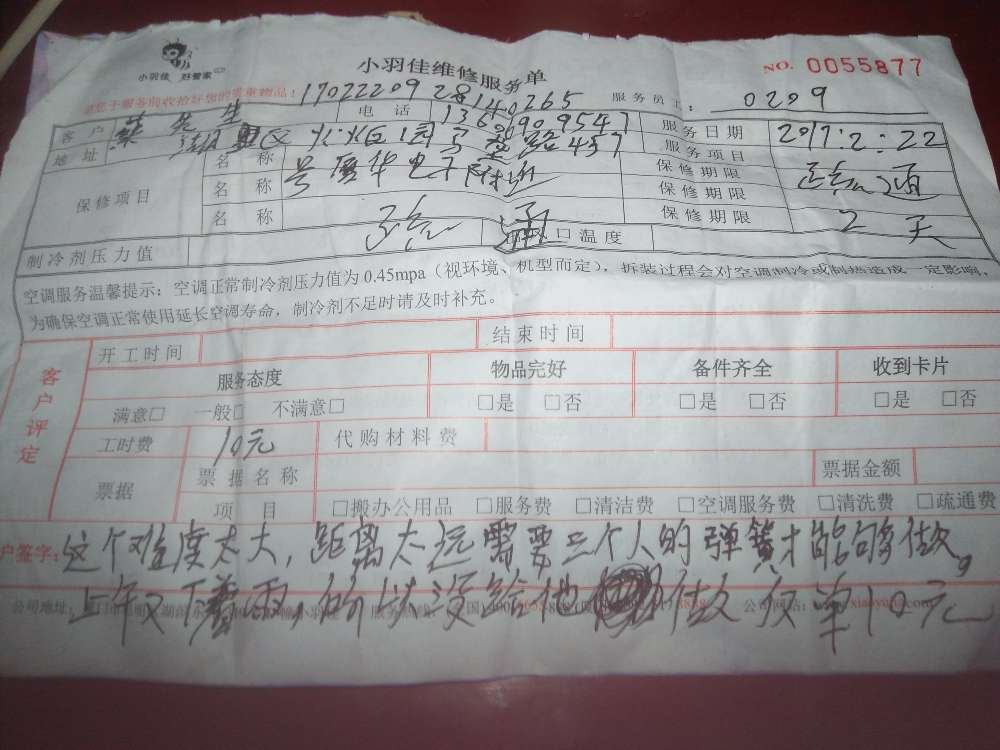 小羽佳 好管家
小羽佳维修服务单
NO. 0055877
请您于服务前收拾好您的贵重物品!
17022209 28140265
服务员工: 0209
客户 先生 电话 服务日期 2017:2:22
地址 湖里区火炬园 路457 服务项目
保修项目 名称 号 华电子附近 保修期限 疏通
名称 保修期限 2天
名称 疏通 保修期限
制冷剂压力值 口温度
空调服务温馨提示:空调正常制冷剂压力值为 0.45mpa(视环境、机型而定),拆装过程会对空调制冷或制热造成一定影响,
为确保空调正常使用延长空调寿命,制冷剂不足时请及时补充。
客户评定
开工时间 结束时间
服务态度 物品完好 备件齐全 收到卡片
满意□ 一般□ 不满意□ □是 □否 □是 □否 □是 □否
工时费 10元 代购材料费
票据 票据名称 票据金额
项目 □搬办公用品 □服务费 □清洁费 □空调服务费 □清洗费 □疏通费
户签字: 这个难度太大,距离太远需要三个人的弹簧才能够做。
上午又下 雨,所以没给他 做 单10元
公司地址: 公司网站: